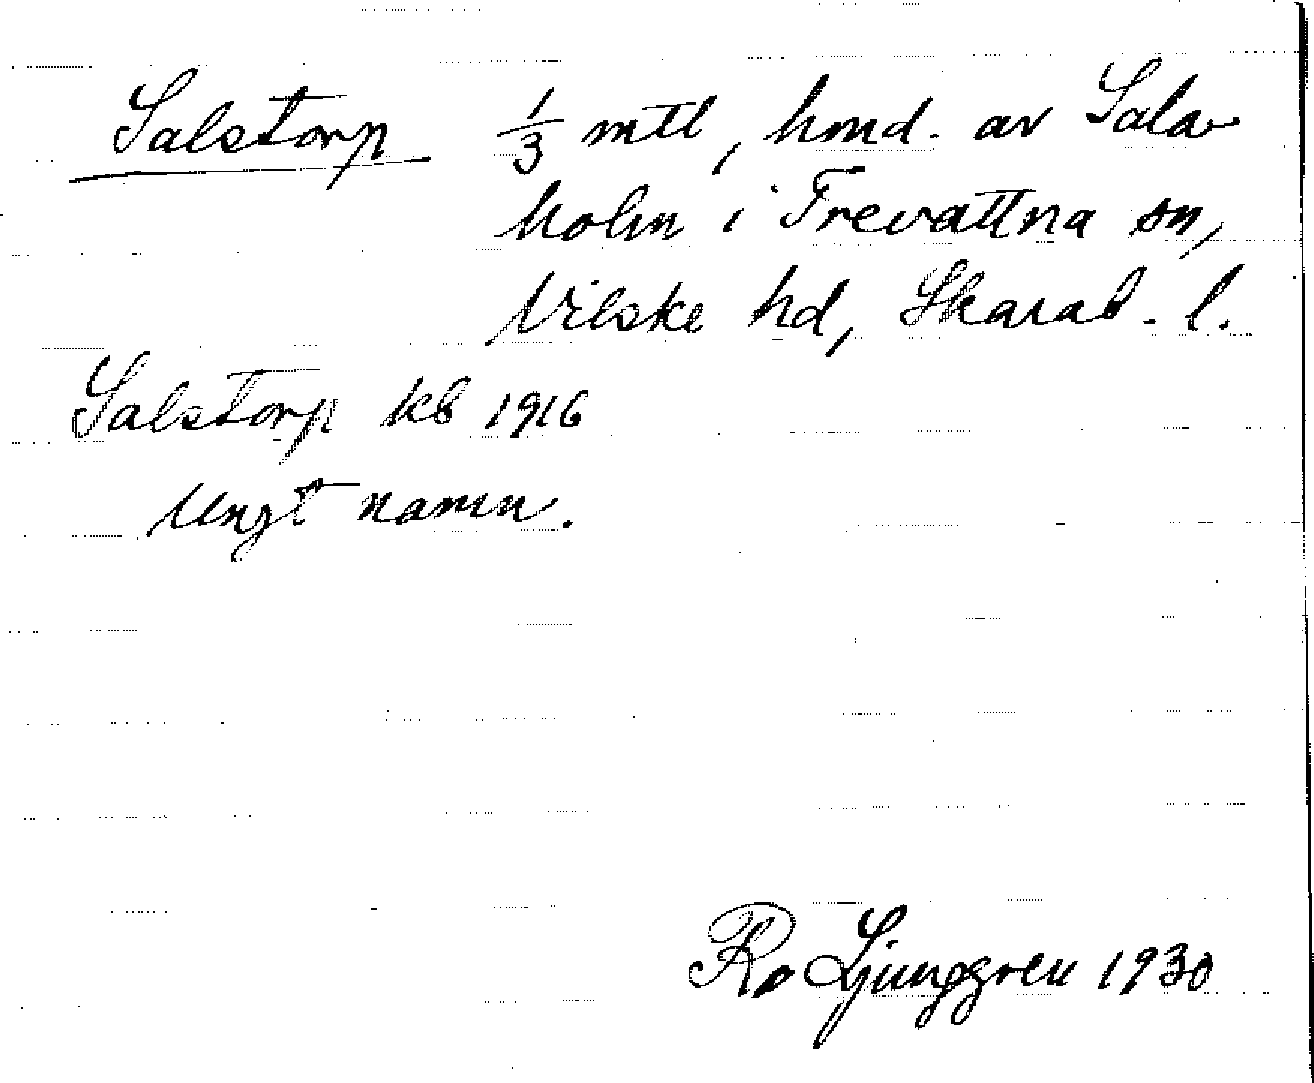 Salstorp 1/3 mtl, hmd. av Sala-
holm i Trevattna sn,
Vilske hd, Skarab. l.
Salstorp kb 1916
Ungt namn.
Ro Ljunggren 1930